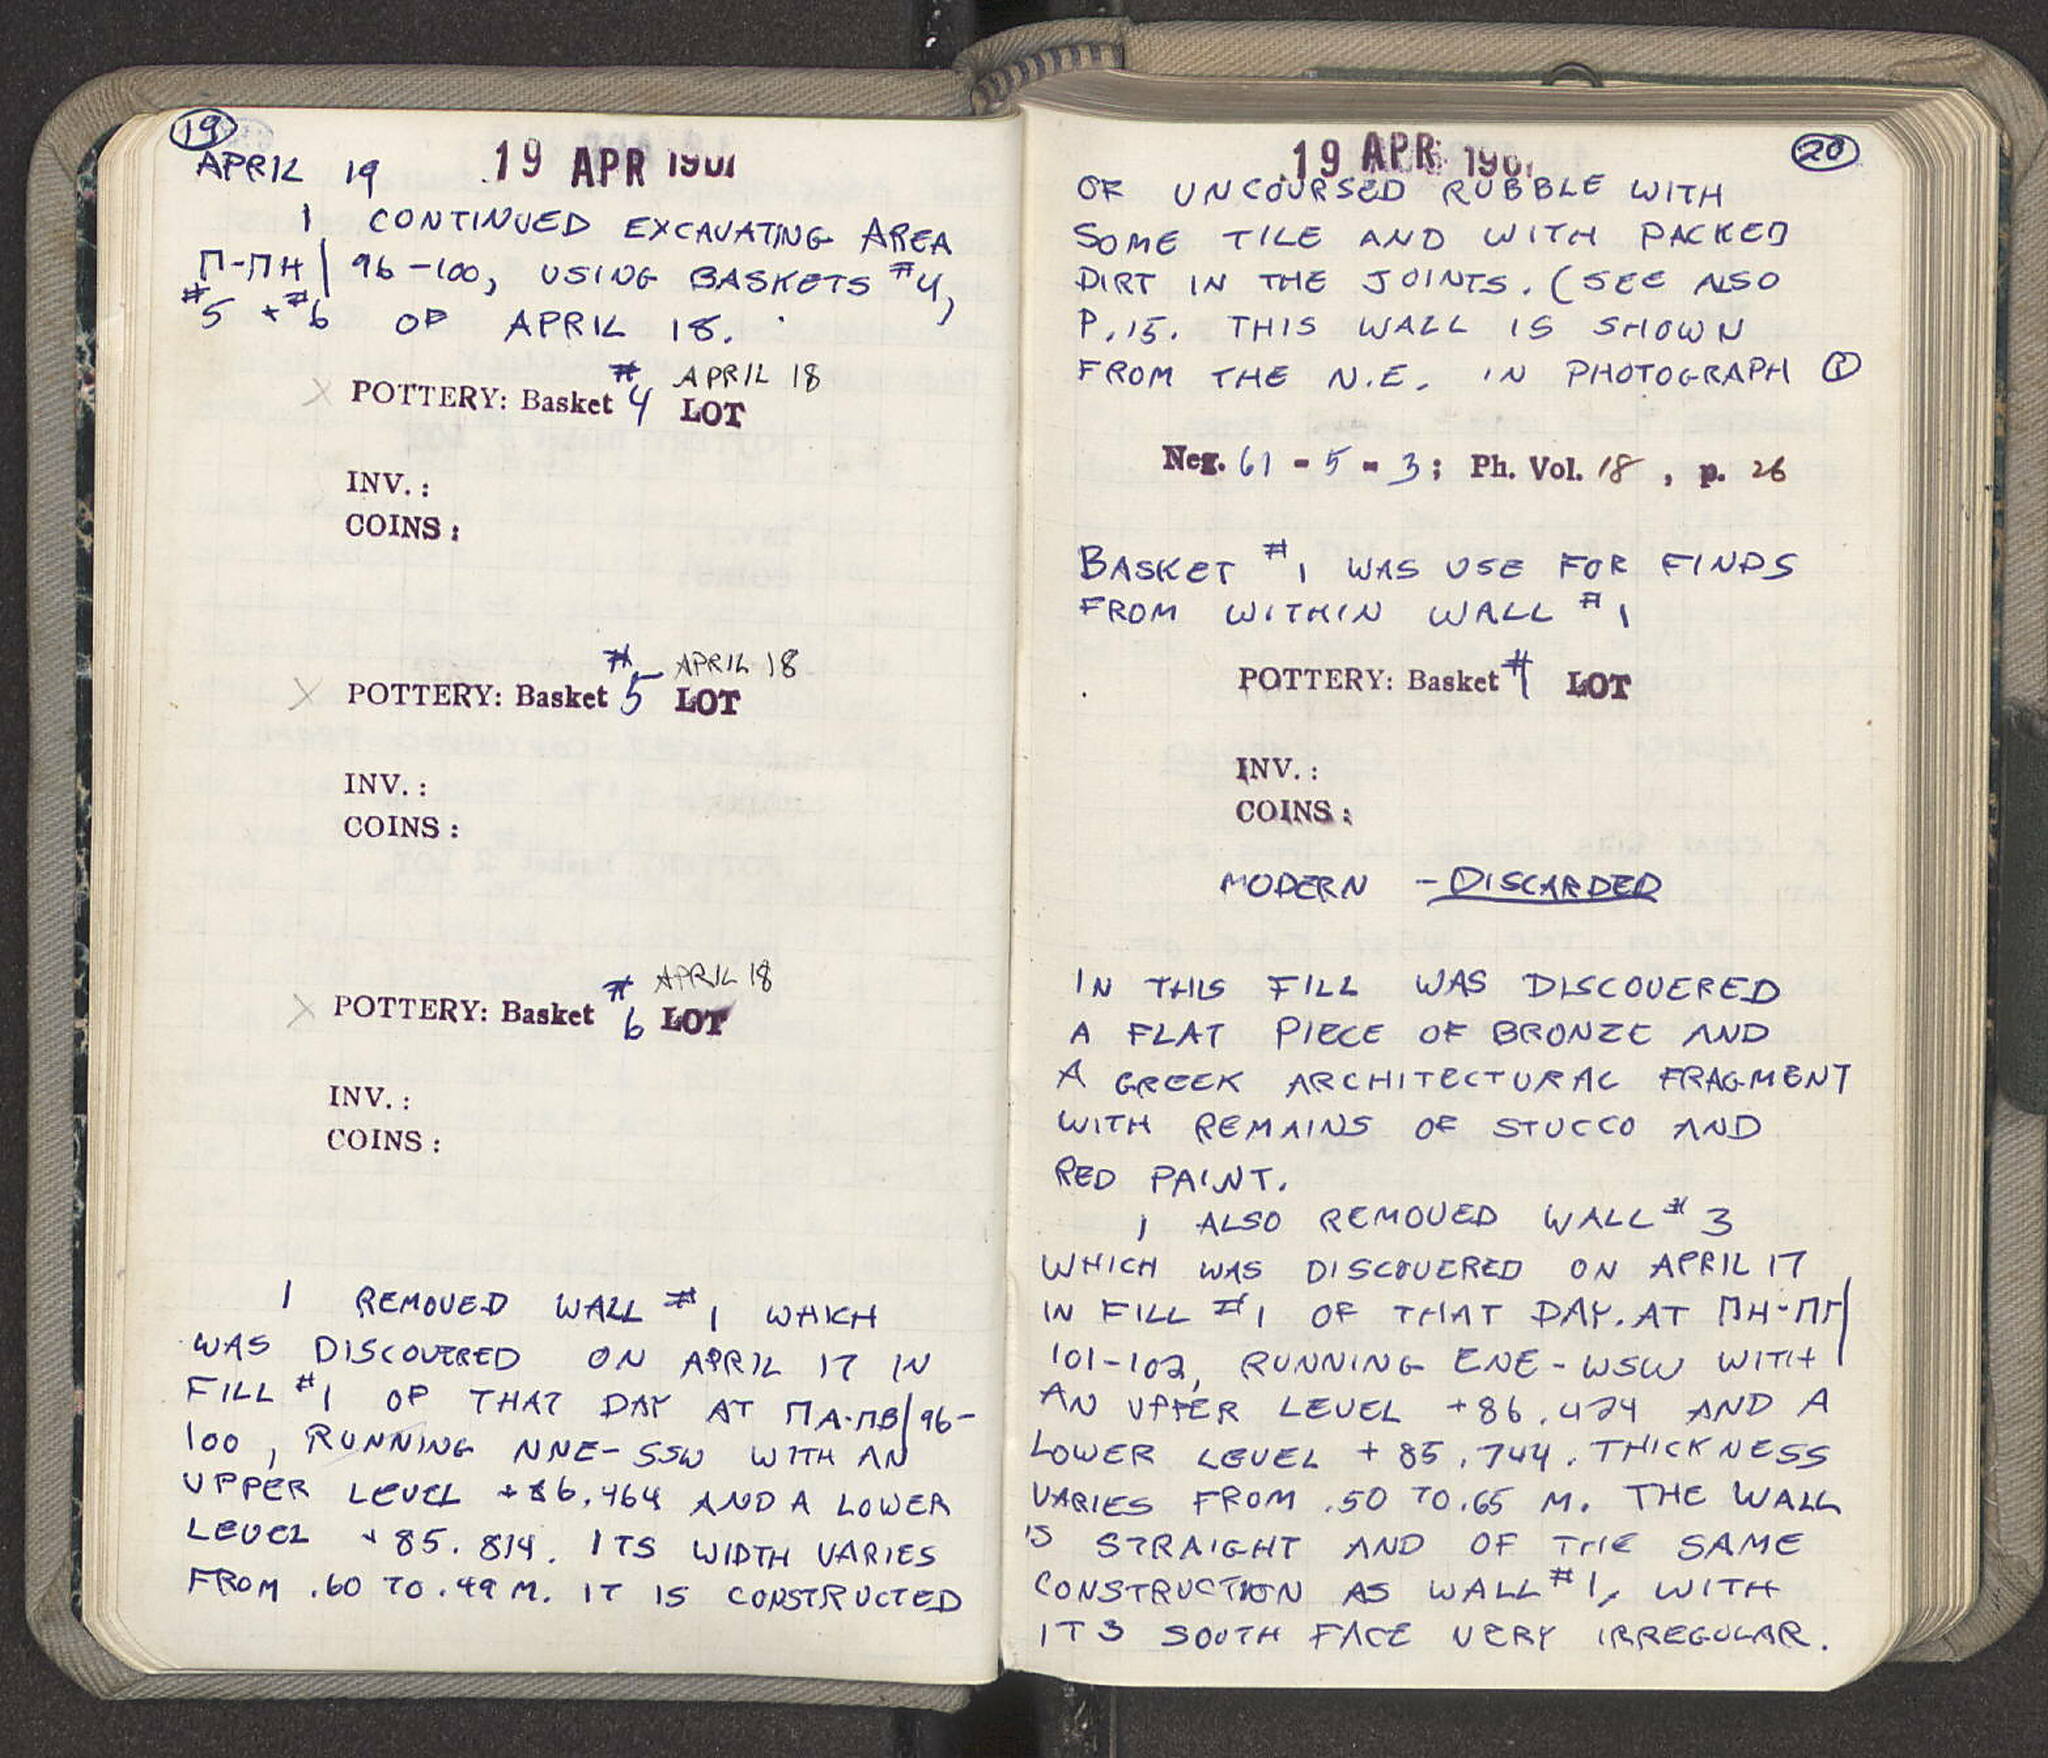 19
APRIL 19 19 APR 1961
I CONTINUED EXCAVATING AREA
Π-ΠΗ| 96-100, USING BASKETS #4,
#5 + #6 OF APRIL 18.
X POTTERY: Basket #4 APRIL 18 LOT
INV.:
COINS:
X POTTERY: Basket #5 APRIL 18 LOT
INV.:
COINS:
X POTTERY: Basket #6 APRIL 18 LOT
INV.:
COINS:
I REMOVED WALL #1 WHICH
WAS DISCOVERED ON APRIL 17 IN
FILL #1 OF THAT DAY AT ΠΑ-ΠΒ|96-
100, RUNNING NNE-SSW WITH AN
UPPER LEVEL +86.464 AND A LOWER
LEVEL +85.814. ITS WIDTH VARIES
FROM .60 TO .49 M. IT IS CONSTRUCTED
19 APR 1961 20
OF UNCOURSED RUBBLE WITH
SOME TILE AND WITH PACKED
DIRT IN THE JOINTS. (SEE ALSO
P.15. THIS WALL IS SHOWN
FROM THE N.E. IN PHOTOGRAPH ①
Neg. 61 - 5 - 3; Ph. Vol. 18, p. 26
BASKET #1 WAS USE FOR FINDS
FROM WITHIN WALL #1
POTTERY: Basket #1 LOT
INV.:
COINS:
MODERN - DISCARDED
IN THIS FILL WAS DISCOVERED
A FLAT PIECE OF BRONZE AND
A GREEK ARCHITECTURAL FRAGMENT
WITH REMAINS OF STUCCO AND
RED PAINT.
I ALSO REMOVED WALL #3
WHICH WAS DISCOVERED ON APRIL 17
IN FILL #1 OF THAT DAY. AT ΠΗ-ΠΓ|
101-102, RUNNING ENE-WSW WITH
AN UPPER LEVEL +86.424 AND A
LOWER LEVEL +85.744. THICKNESS
VARIES FROM .50 TO .65 M. THE WALL
IS STRAIGHT AND OF THE SAME
CONSTRUCTION AS WALL #1, WITH
ITS SOUTH FACE VERY IRREGULAR.